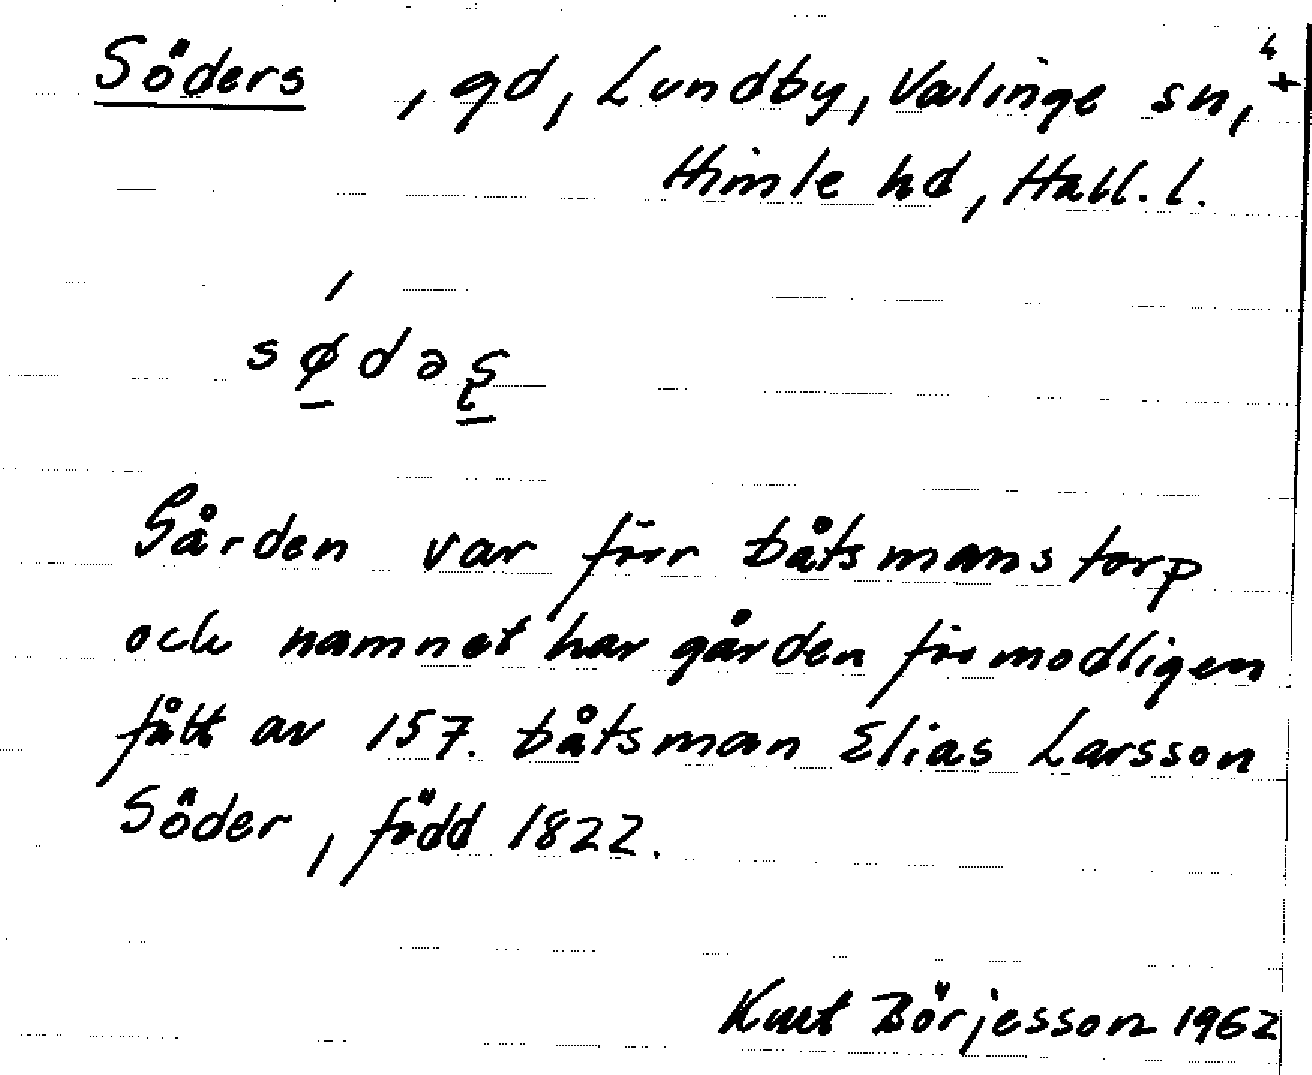 Söders, gd, Lundby, Valinge sn, 4 +
Himle hd, Hall. l.
sǿ̱dəʂ̱
Gården var förr båtsmanstorp
och namnet har gården förmodligen
fått av 157. båtsman Elias Larsson
Söder, född 1822.
Kurt Börjesson 1962